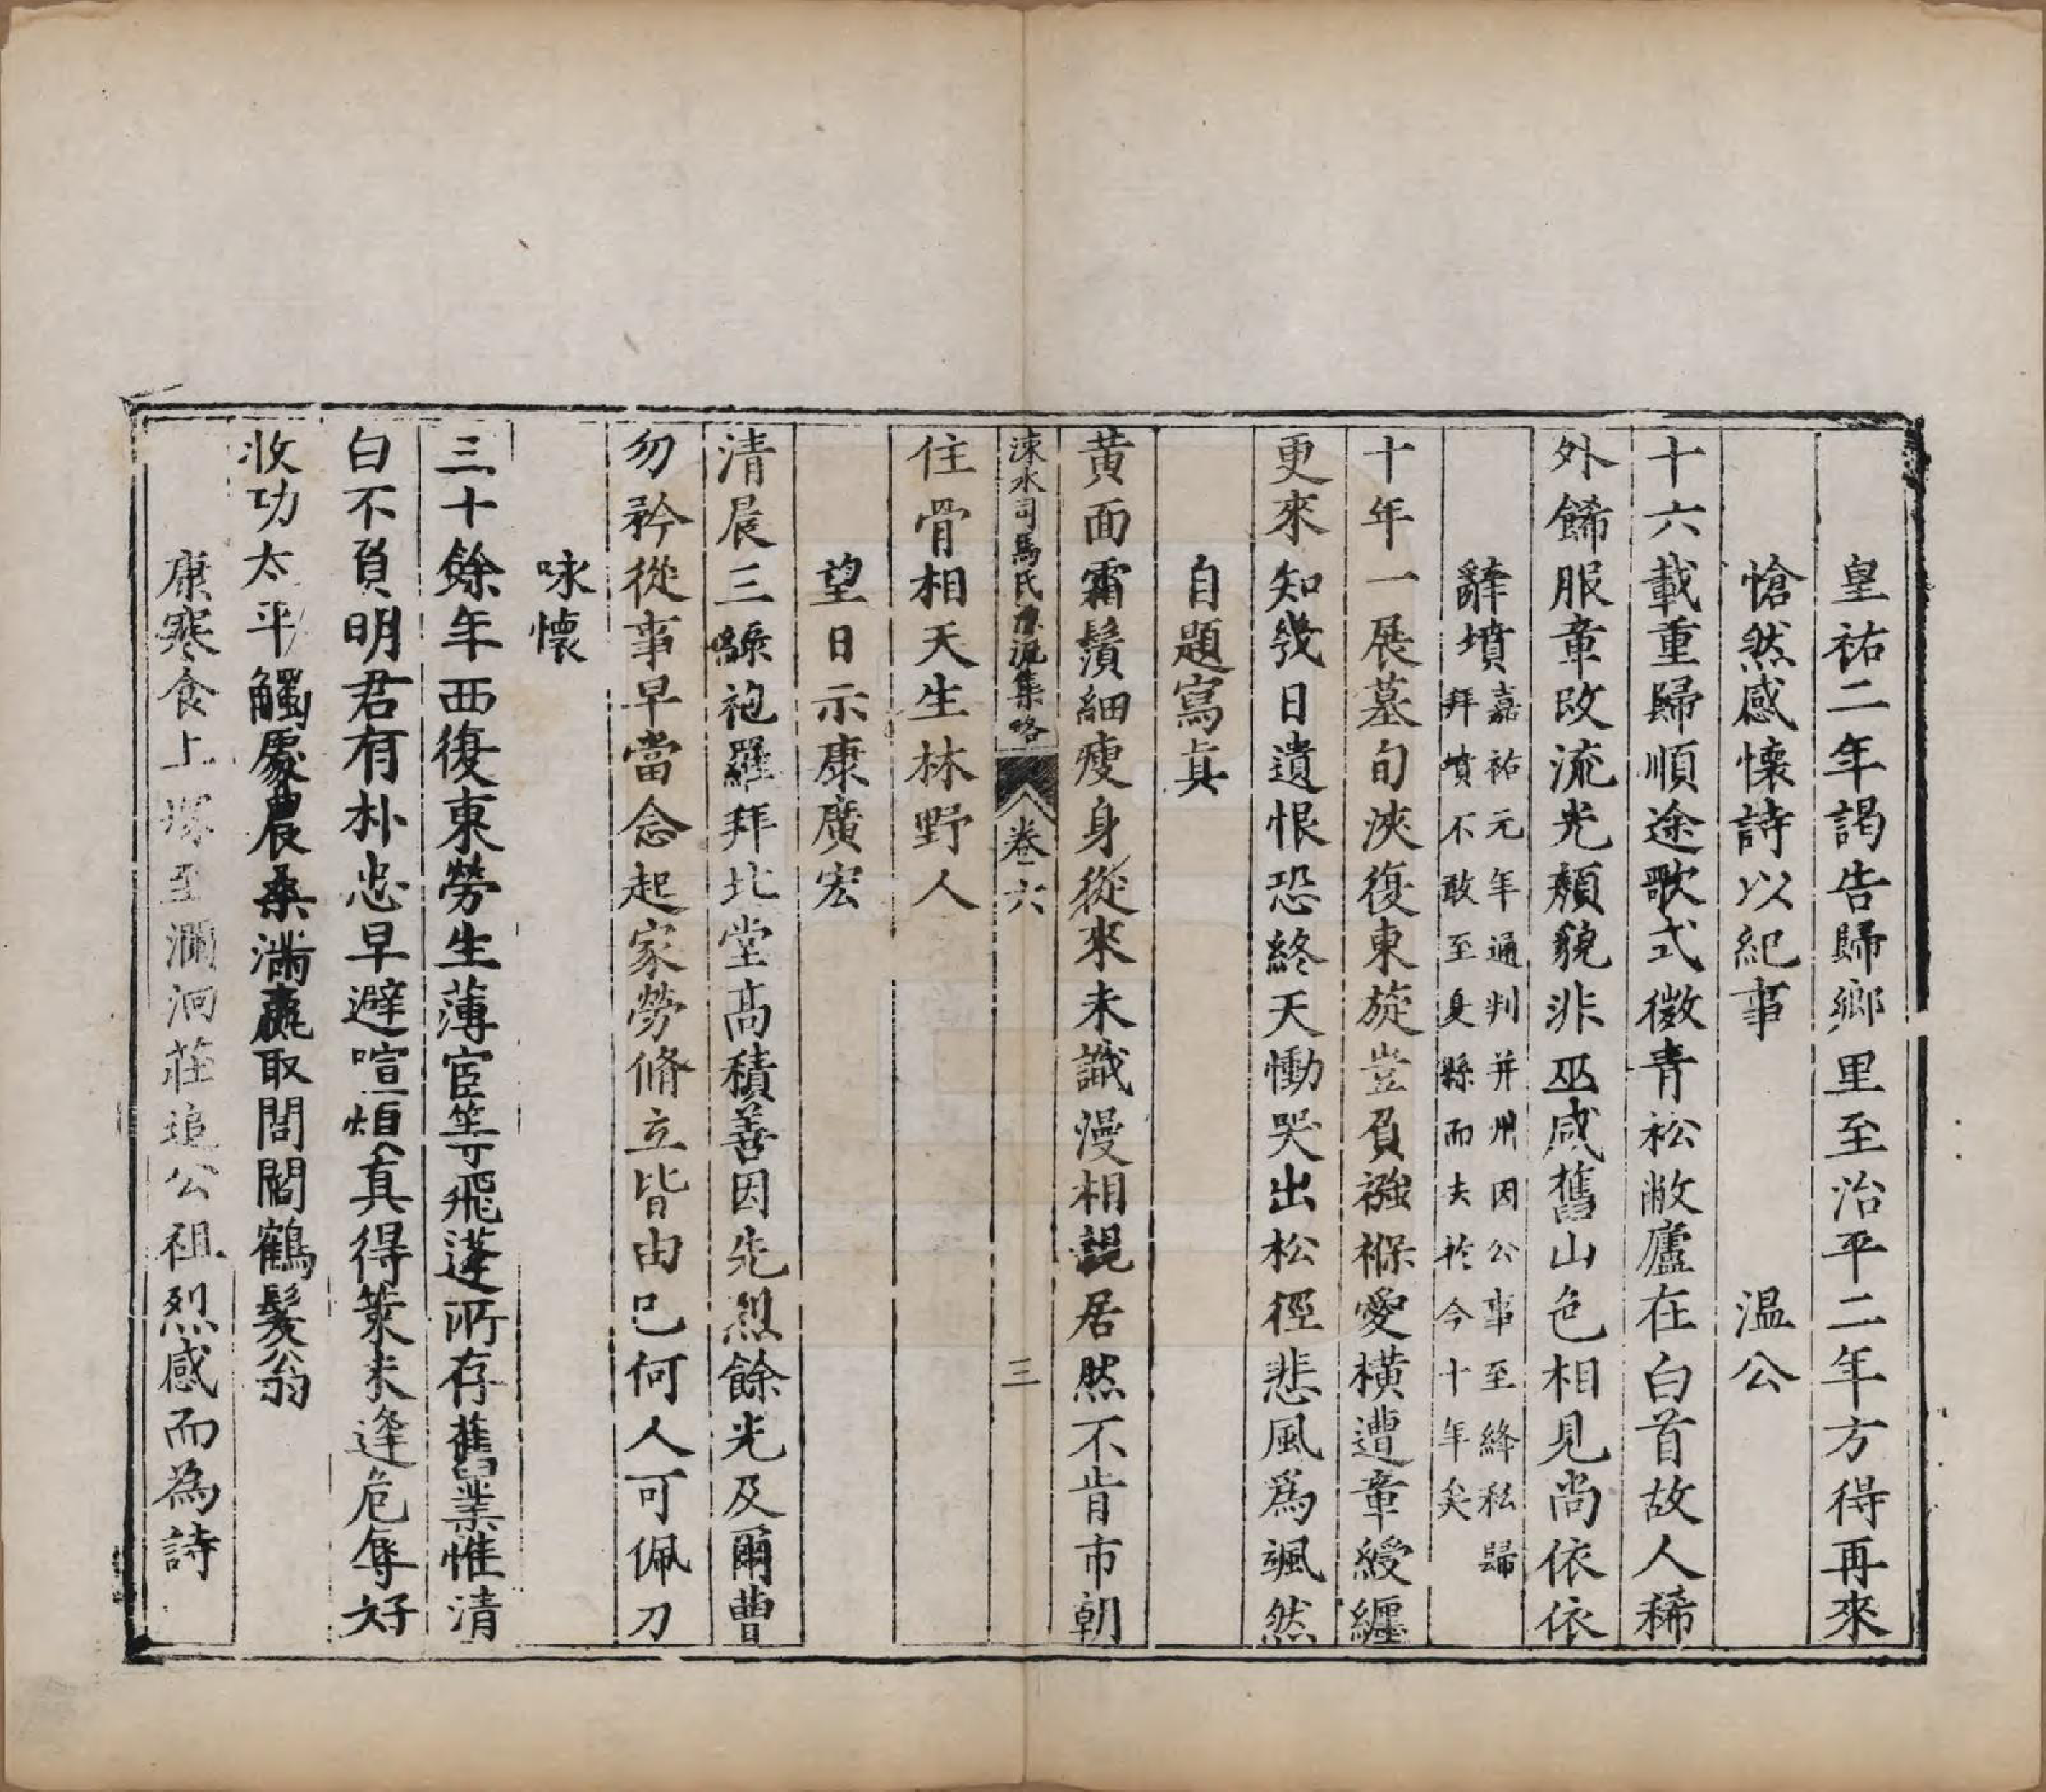 皇祐二年謁告歸鄉里至治平二年方得再來
愴然感懷詩以紀事　温公
十六載重歸順途歌式微青松敝廬在白首故人稀
外餙服章改流光顏貌非巫咸舊山色相見尚依依
辭墳嘉祐元年通判并州因公事至絳私歸
拜墳不敢至夏縣而去於今十年矣
十年一展墓旬浹復東旋豈負襁褓愛橫遭章綬纏
更來知幾日遺恨恐終天慟哭出松徑悲風爲颯然
自題寫真
黄面霜鬚細瘦身從來未識漫相親居然不肯市朝
涑水司馬氏源流集略　卷六　三
住骨相天生林野人
望日示康廣宏
清晨三繰袍羅拜北堂高積善因先烈餘光及爾曹
勿矜從事早當念起家勞脩立皆由己何人可佩刀
咏懷
三十餘年西復東勞生薄宦等飛蓬所存舊業惟清
白不負明君有朴忠早避喧煩真得策未逢危辱好
收功太平觸處農桑滿贏取閭閻鶴髮翁
康寒食上塚至瀾洄莊追公祖烈感而為詩